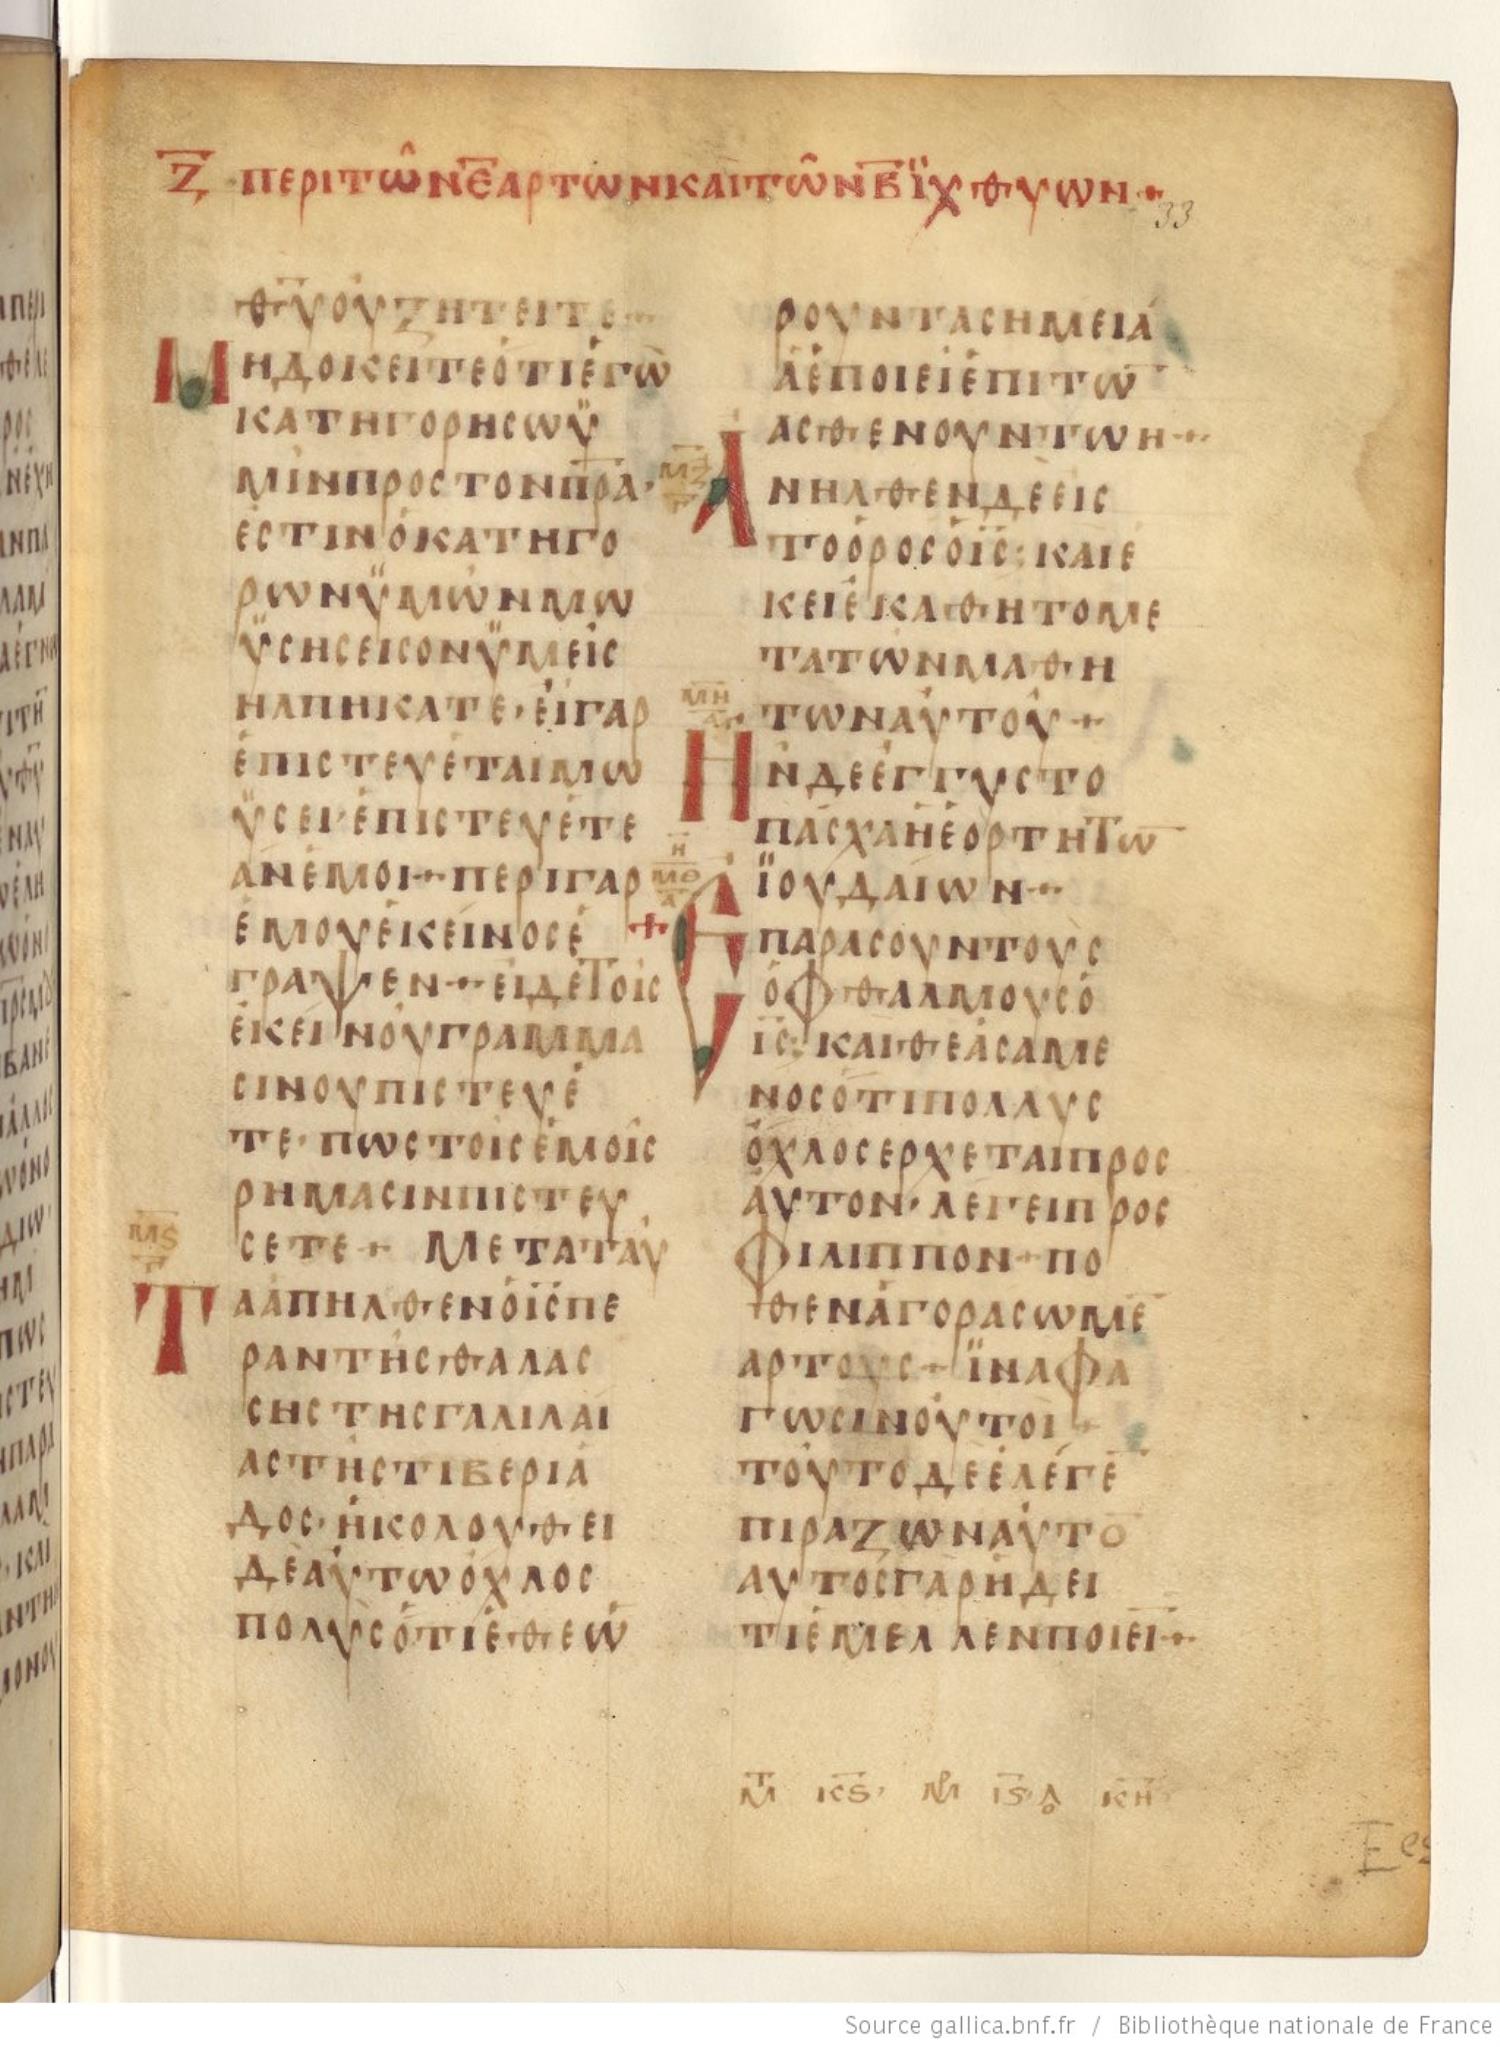 Ζ ΠΕΡΙ ΤΩΝ Ε ΑΡΤΩΝ ΚΑΙ ΤΩΝ Β ΪΧΘΥΩΝ
33
ΘΥ ΟΥ ΖΗΤΕΙΤΕ
ΜΗ ΔΟΚΕΙΤΕ ΟΤΙ ΕΓΩ
ΚΑΤΗΓΟΡΗСΩ Ϋ
ΜΙΝ ΠΡΟС ΤΟΝ ΠΡΑ·
ΕСΤΙΝ Ο ΚΑΤΗΓΟ
ΡΩΝ ΫΜΩΝ ΜΩ
ΫСΗС ΕΙС ΟΝ ΫΜΕΙС
ΗΛΠΗΚΑΤΕ· ΕΙ ΓΑΡ
ΕΠΙСΤΕΥΕΤΑΙ ΜΩ
ΫСΕΙ· ΕΠΙСΤΕΥΕΤΕ
ΑΝ ΕΜΟΙ· ΠΕΡΙ ΓΑΡ
ΕΜΟΥ ΕΚΕΙΝΟС Ε
ΓΡΑΨΕΝ· ΕΙ ΔΕ ΤΟΙС
ΕΚΕΙΝΟΥ ΓΡΑΜΜΑ
СΙΝ ΟΥ ΠΙСΤΕΥΕ
ΤΕ· ΠΩС ΤΟΙС ΕΜΟΙС
ΡΗΜΑСΙΝ ΠΙСΤΕΥ
СΕΤΕ· ΜΕΤΑ ΤΑΥ
ΜϚ
Γ
ΤΑ ΑΠΗΛΘΕΝ Ο ΪС ΠΕ
ΡΑΝ ΤΗС ΘΑΛΑС
СΗС ΤΗС ΓΑΛΙΛΑΙ
ΑС ΤΗС ΤΙΒΕΡΙΑ
ΔΟС· ΗΚΟΛΟΥΘΕΙ
ΔΕ ΑΥΤΩ ΟΧΛΟС
ΠΟΛΥС ΟΤΙ ΕΘΕΩ
ΡΟΥΝ ΤΑ СΗΜΕΙΑ
Α ΕΠΟΙΕΙ ΕΠΙ ΤΩ
ΑСΘΕΝΟΥΝΤΩΝ·
ΜΖ
Γ
ΑΝΗΛΘΕΝ ΔΕ ΕΙС
ΤΟ ΟΡΟС Ο ΪС: ΚΑΙ Ε
ΚΕΙ ΕΚΑΘΗΤΟ ΜΕ
ΤΑ ΤΩΝ ΜΑΘΗ
ΤΩΝ ΑΥΤΟΥ·
ΜΗ
Α
ΗΝ ΔΕ ΕΓΓΥС ΤΟ
ΠΑСΧΑ Η ΕΟΡΤΗ ΤΩ
ΪΟΥΔΑΙΩΝ·
Η
ΜΘ
Α
ΕΠΑΡΑС ΟΥΝ ΤΟΥС
ΟΦΘΑΛΜΟΥС Ο
ΪС: ΚΑΙ ΘΕΑСΑΜΕ
ΝΟС ΟΤΙ ΠΟΛΛΥС
ΟΧΛΟС ΕΡΧΕΤΑΙ ΠΡΟС
ΑΥΤΟΝ· ΛΕΓΕΙ ΠΡΟС
ΦΙΛΙΠΠΟΝ· ΠΟ
ΘΕΝ ΑΓΟΡΑСΩΜΕ
ΑΡΤΟΥС· ΪΝΑ ΦΑ
ΓΩСΙΝ ΟΥΤΟΙ·
ΤΟΥΤΟ ΔΕ ΕΛΕΓΕ
ΠΙΡΑΖΩΝ ΑΥΤΟ
ΑΥΤΟС ΓΑΡ ΗΔΕΙ
ΤΙ ΕΜΕΛΛΕΝ ΠΟΙΕΙ·
Source gallica.bnf.fr / Bibliothèque nationale de France